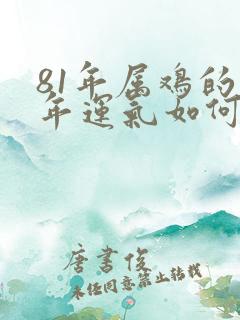 81年属鸡的
年运气如何
唐书俊
未经同意禁止转载